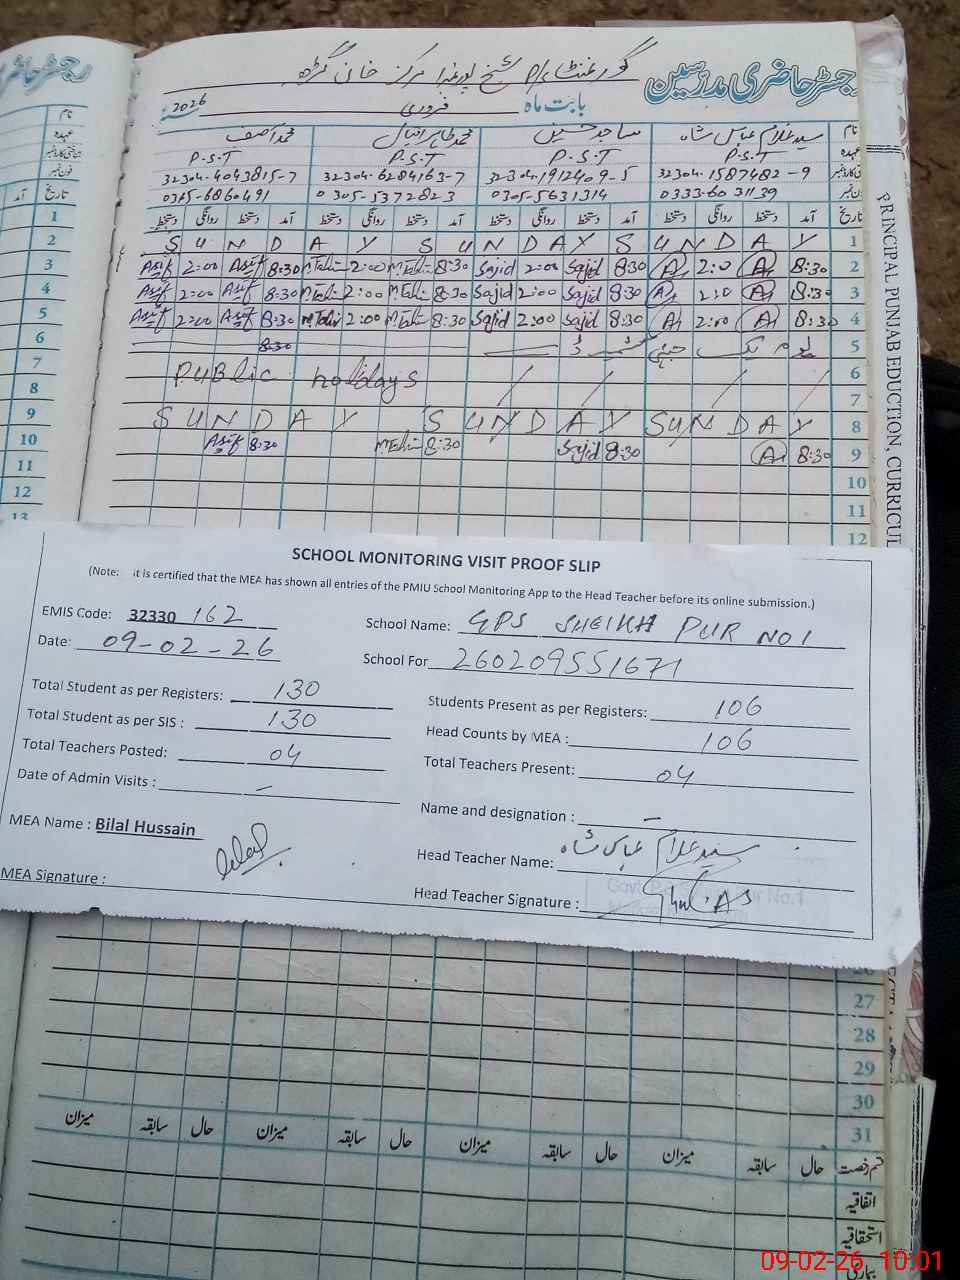 رجسٹر حاضری مدرسین
گورنمنٹ پ/ا شیخ پور نمبر1 مرکز خان گڑھ
بابت ماہ فروری 2026
نام سید غلام عباس شاہ ساجد حسین محمد طاہر اقبال محمد آصف
عہدہ P.S.T P.S.T P.S.T P.S.T
32304-4043815-7 32304-6284163-7 32304-1912409-5 32304-1587482-9
فون نمبر
0345-6860491 0305-5372823 0305-5631314 0333-6031139
تاریخ آمد دستخط روانگی دستخط آمد دستخط روانگی دستخط آمد دستخط روانگی دستخط آمد دستخط روانگی دستخط
SUNDAY SUNDAY SUNDAY 1
Asif 2:00 Asif 8:30 MTahir 2:00 MTahir 8:30 Sajid 2:00 Sajid 8:30 A 2:0 A 8:30 2
Asif 2:00 Asif 8:30 MTahir 2:00 MTahir 8:30 Sajid 2:00 Sajid 8:30 A 2:0 A 8:30 3
Asif 2:00 Asif 8:30 MTahir 2:00 MTahir 8:30 Sajid 2:00 Sajid 8:30 A 2:00 A 8:30 4
8:30 یوم یک جہتی کشمیر 5
Public holidays 6
7
SUNDAY SUNDAY SUNDAY 8
Asif 8:30 MTahir 8:30 Sajid 8:30 A 8:30 9
10
11
12
رجسٹر حاضری
نام
عہدہ
فون نمبر
تاریخ آمد
1
2
3
4
5
6
7
8
9
10
11
12
13
PRINCIPAL PUNJAB EDUCTION, CURRICUL
SCHOOL MONITORING VISIT PROOF SLIP
(Note: it is certified that the MEA has shown all entries of the PMIU School Monitoring App to the Head Teacher before its online submission.)
EMIS Code: 32330 162
School Name: GPS SHEIKH PUR NO 1
Date: 09-02-26
School For 260209551671
Total Student as per Registers: 130
Students Present as per Registers: 106
Total Student as per SIS : 130
Head Counts by MEA : 106
Total Teachers Posted: 04
Total Teachers Present: 04
Date of Admin Visits : —
Name and designation : —
MEA Name : Bilal Hussain
Head Teacher Name: سید غلام عباس شاہ
MEA Signature : Bilal
Head Teacher Signature :
26
27
28
29
30
31
قسم رخصت حال سابقہ میزان حال سابقہ میزان حال سابقہ میزان حال سابقہ میزان
اتفاقیہ
استحقاقیہ
بیماری
09-02-26 10:01